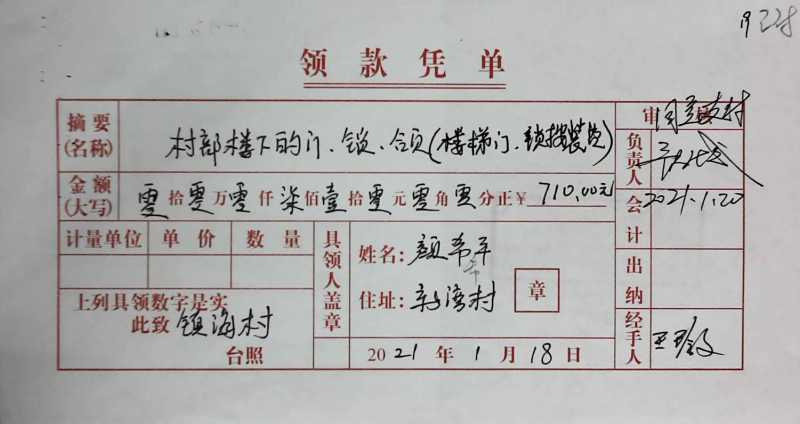 领款凭单
摘要(名称) 村部楼下的门、锁、领(楼梯门、锁按装员)
审
金额(大写) 零拾零万零仟柒佰壹拾零元零角零分正¥710.00元
同意支付
负责人
会计 2021.1.20
计量单位 单价 数量
具领人盖章
姓名:颜希平
住址:新湾村
章
出纳
上列具领数字是实
此致 镇海村
台照
2021年1月18日
经手人